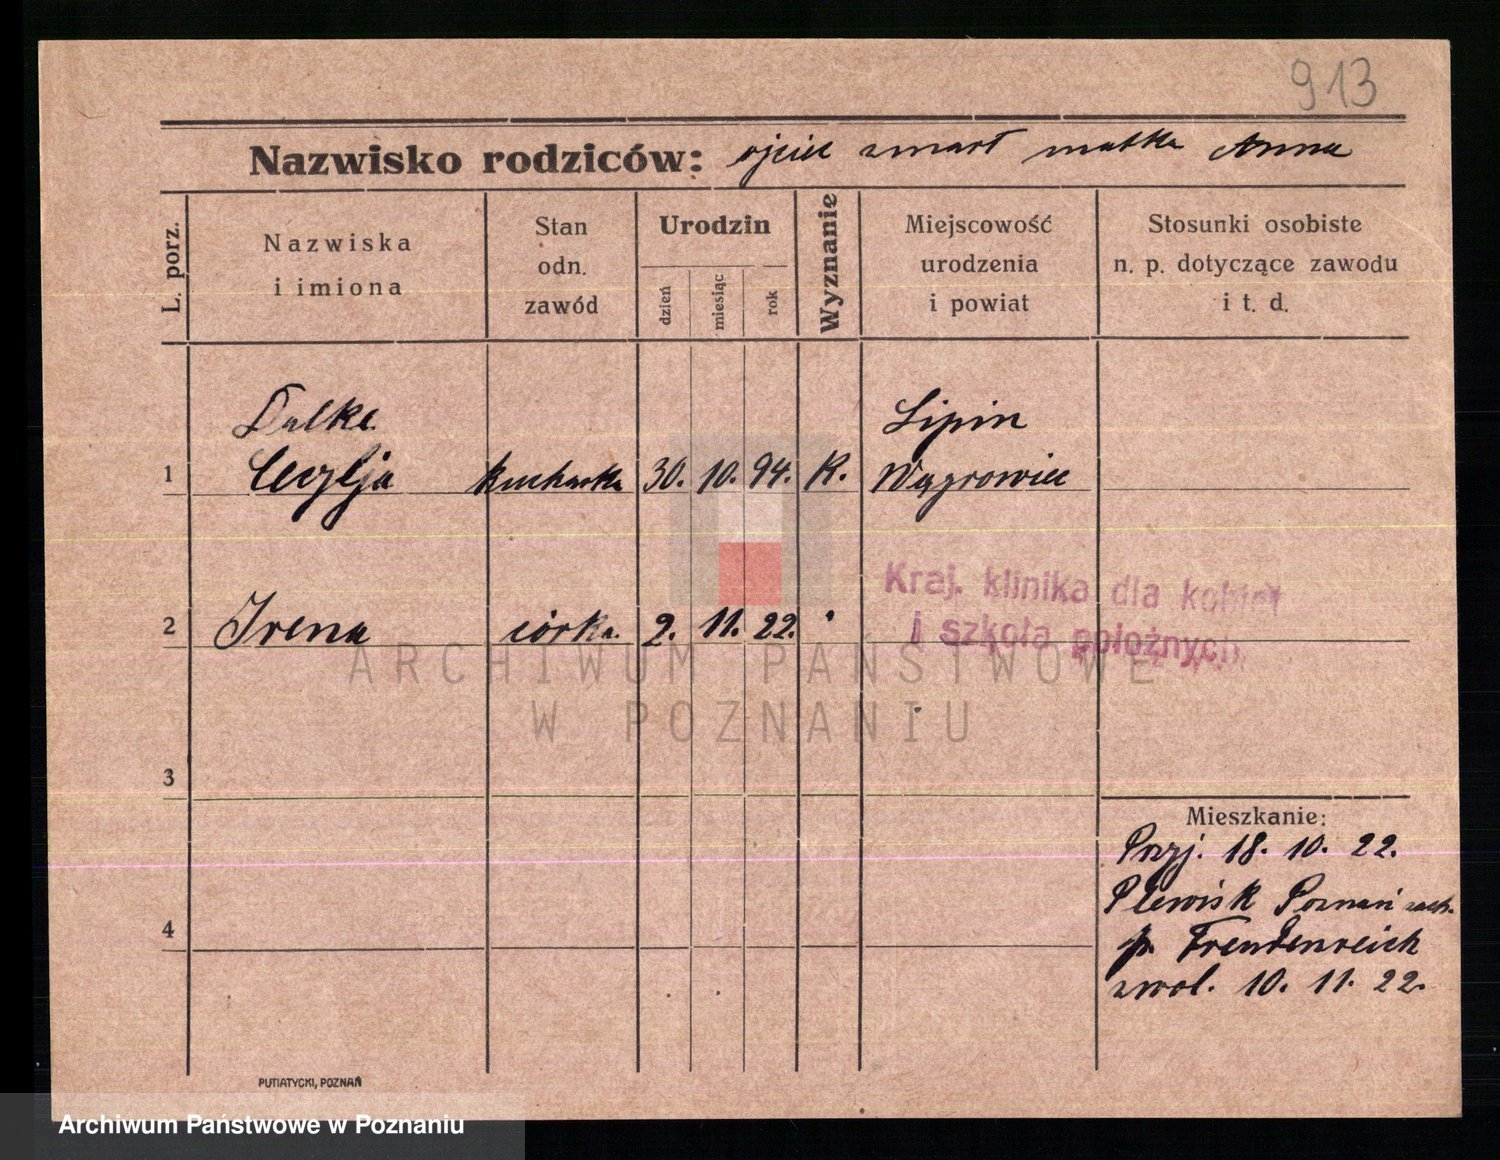 913
Nazwisko rodziców: ojciec zmarł matka Anna
L. porz.
Nazwiska
i imiona
Stan
odn.
zawód
Urodzin
dzień
miesiąc
rok
Wyznanie
Miejscowość
urodzenia
i powiat
Stosunki osobiste
n. p. dotyczące zawodu
i t. d.
Dalke Lipin
1 Cecylja kucharka 30. 10. 94. K. Wągrowiec
Kraj. klinika dla kobiet
i szkoła położnych
2 Irena córka. 2. 11. 22. "
ARCHIWUM PAŃSTWOWE
W POZNANIU
3
Mieszkanie:
Przyj. 18. 10. 22.
Plewisk Poznań zach.
4
p. Freudenreich
zwol. 10. 11. 22.
PUTIATYCKI, POZNAŃ
Archiwum Państwowe w Poznaniu